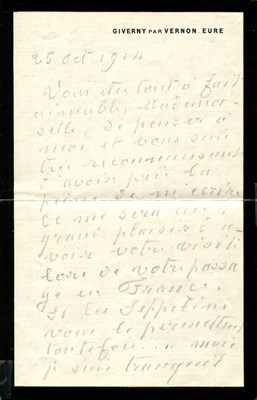 GIVERNY PAR VERNON. EURE
25 oct 1914
Vous êtes tout à fait
aimable, Mademoi-
selle de penser à
moi et vous suis
très reconnaissant
d'avoir pris la
peine de m'écrire
Ce me sera un
grand plaisir d'a-
voir votre visite
lors de votre passa
ge en France.
Si les Zeppelins
vous le permettent
toutefois. mais
je suis tranquil